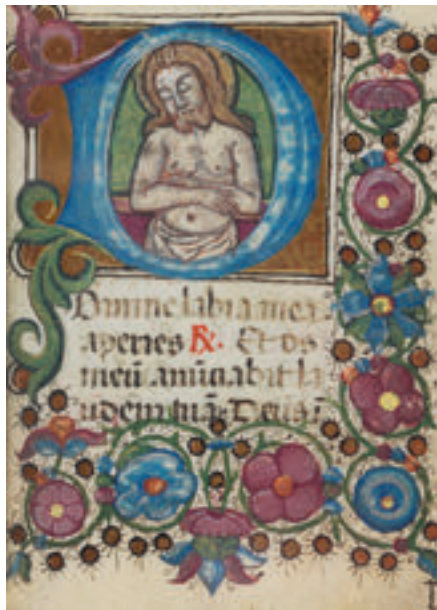 D
Domine labia mea
aperies ℟. Et os
meū anūciabit la
udem tuā. Deus